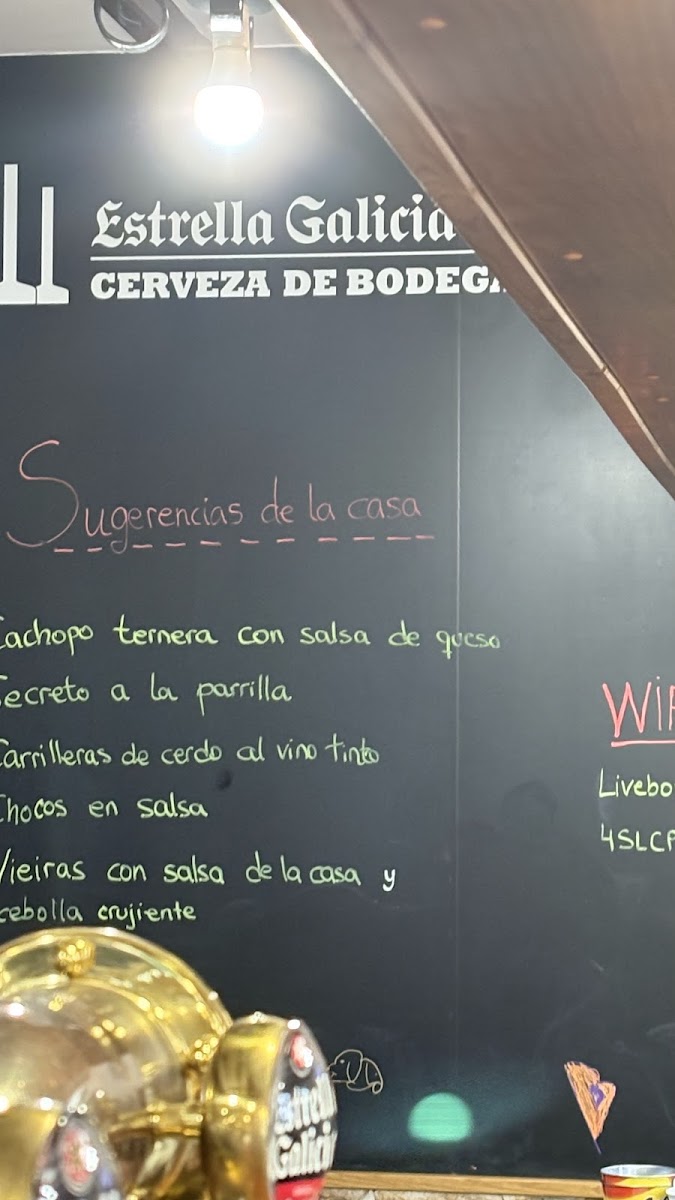 Estrella Galicia
CERVEZA DE BODEGA
Sugerencias de la casa
Cachopo ternera con salsa de queso
Secreto a la parrilla
Carrilleras de cerdo al vino tinto
Chocos en salsa
Vieiras con salsa de la casa y
cebolla crujiente
WIF
Livebo
4SLCF
Galicia